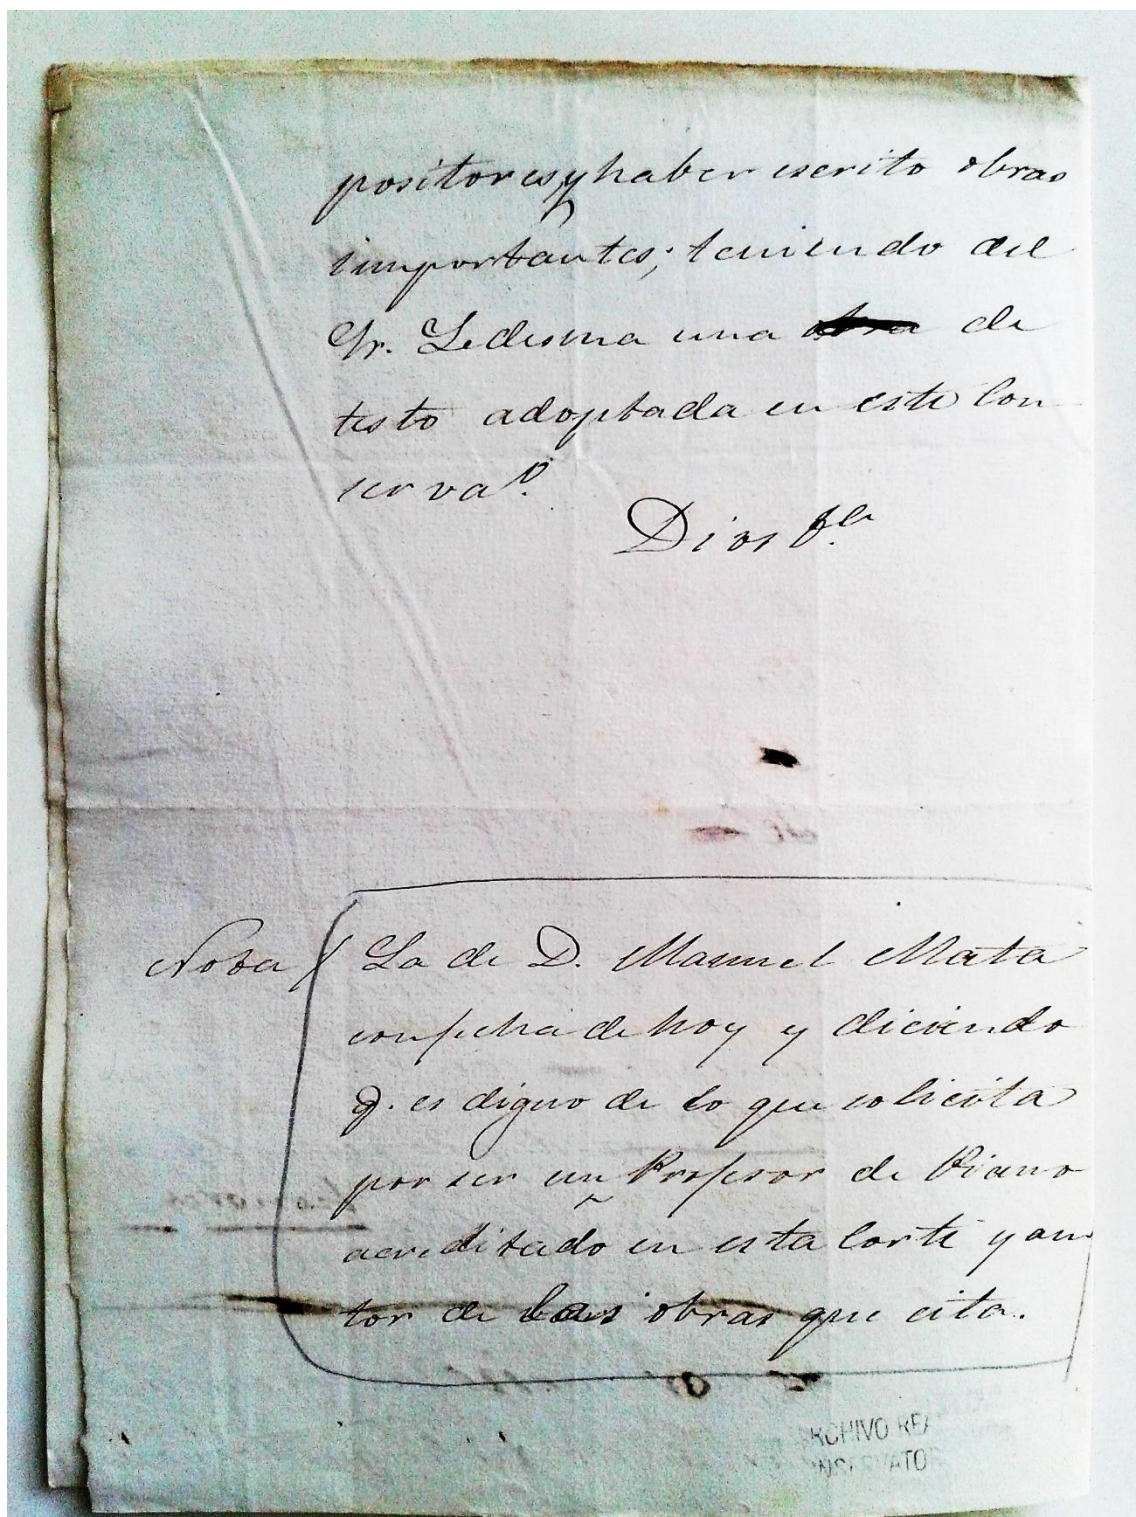 positores y haber escrito obras
importantes; teniendo del
Sr. Ledesma una obra de
testo adoptada en este Con-
servaº.
Dios &ª
Nota / La de D. Manuel Mata
con fecha de hoy y diciendo
q. es digno de lo que solicita
por ser un Profesor de Piano
acreditado en esta Corte y au-
tor de las obras que cita.
RCHIVO REA
NSERVATO